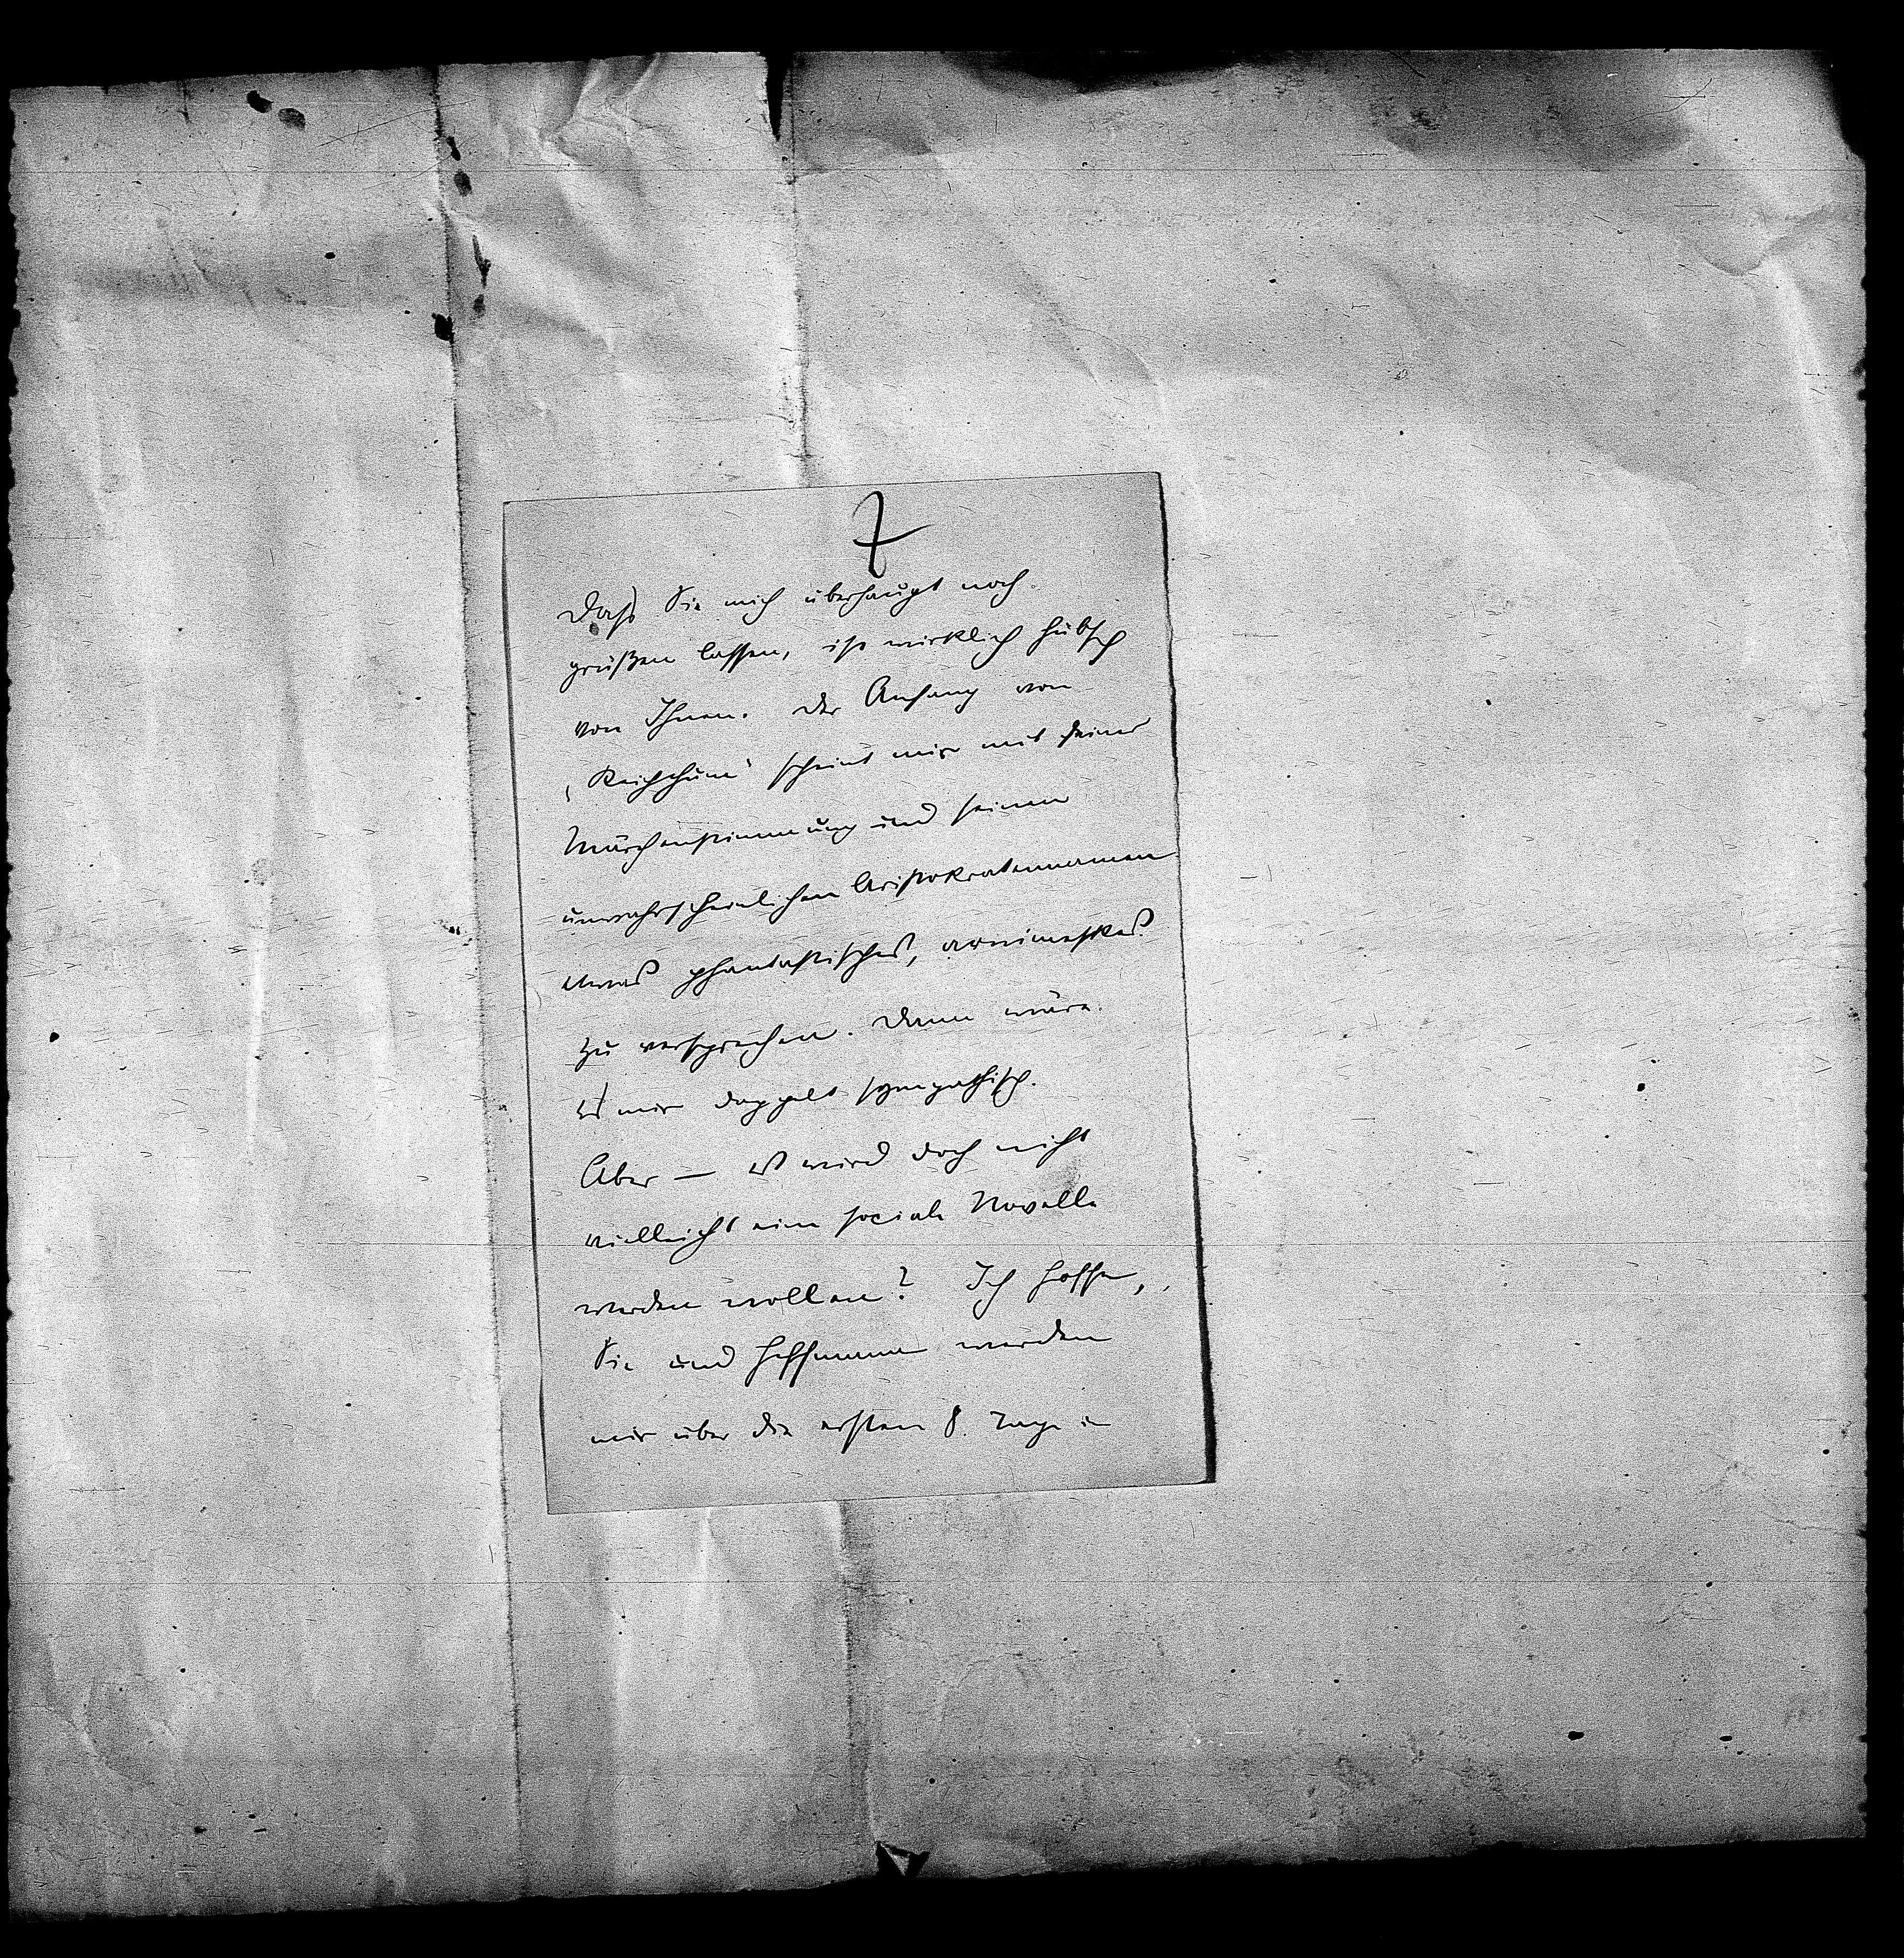 7
Daß Sie mich überhaupt noch
grüßen lassen, ist wirklich hübsch
von Ihnen. Der Anfang von
„Reichthum“ scheint mir mit seiner
Märchenstimmung und seinen
unwahrscheinlichen Aristokratennamen
etwas phantastisches, arnimeskes
zu versprechen. Dann wäre
es mir doppelt sympathisch.
Aber — es wird doch nicht
vielleicht eine sociale Novelle
werden wollen? Ich hoffe,
Sie und Hoffmann werden
mir über die ersten 8 Tage in